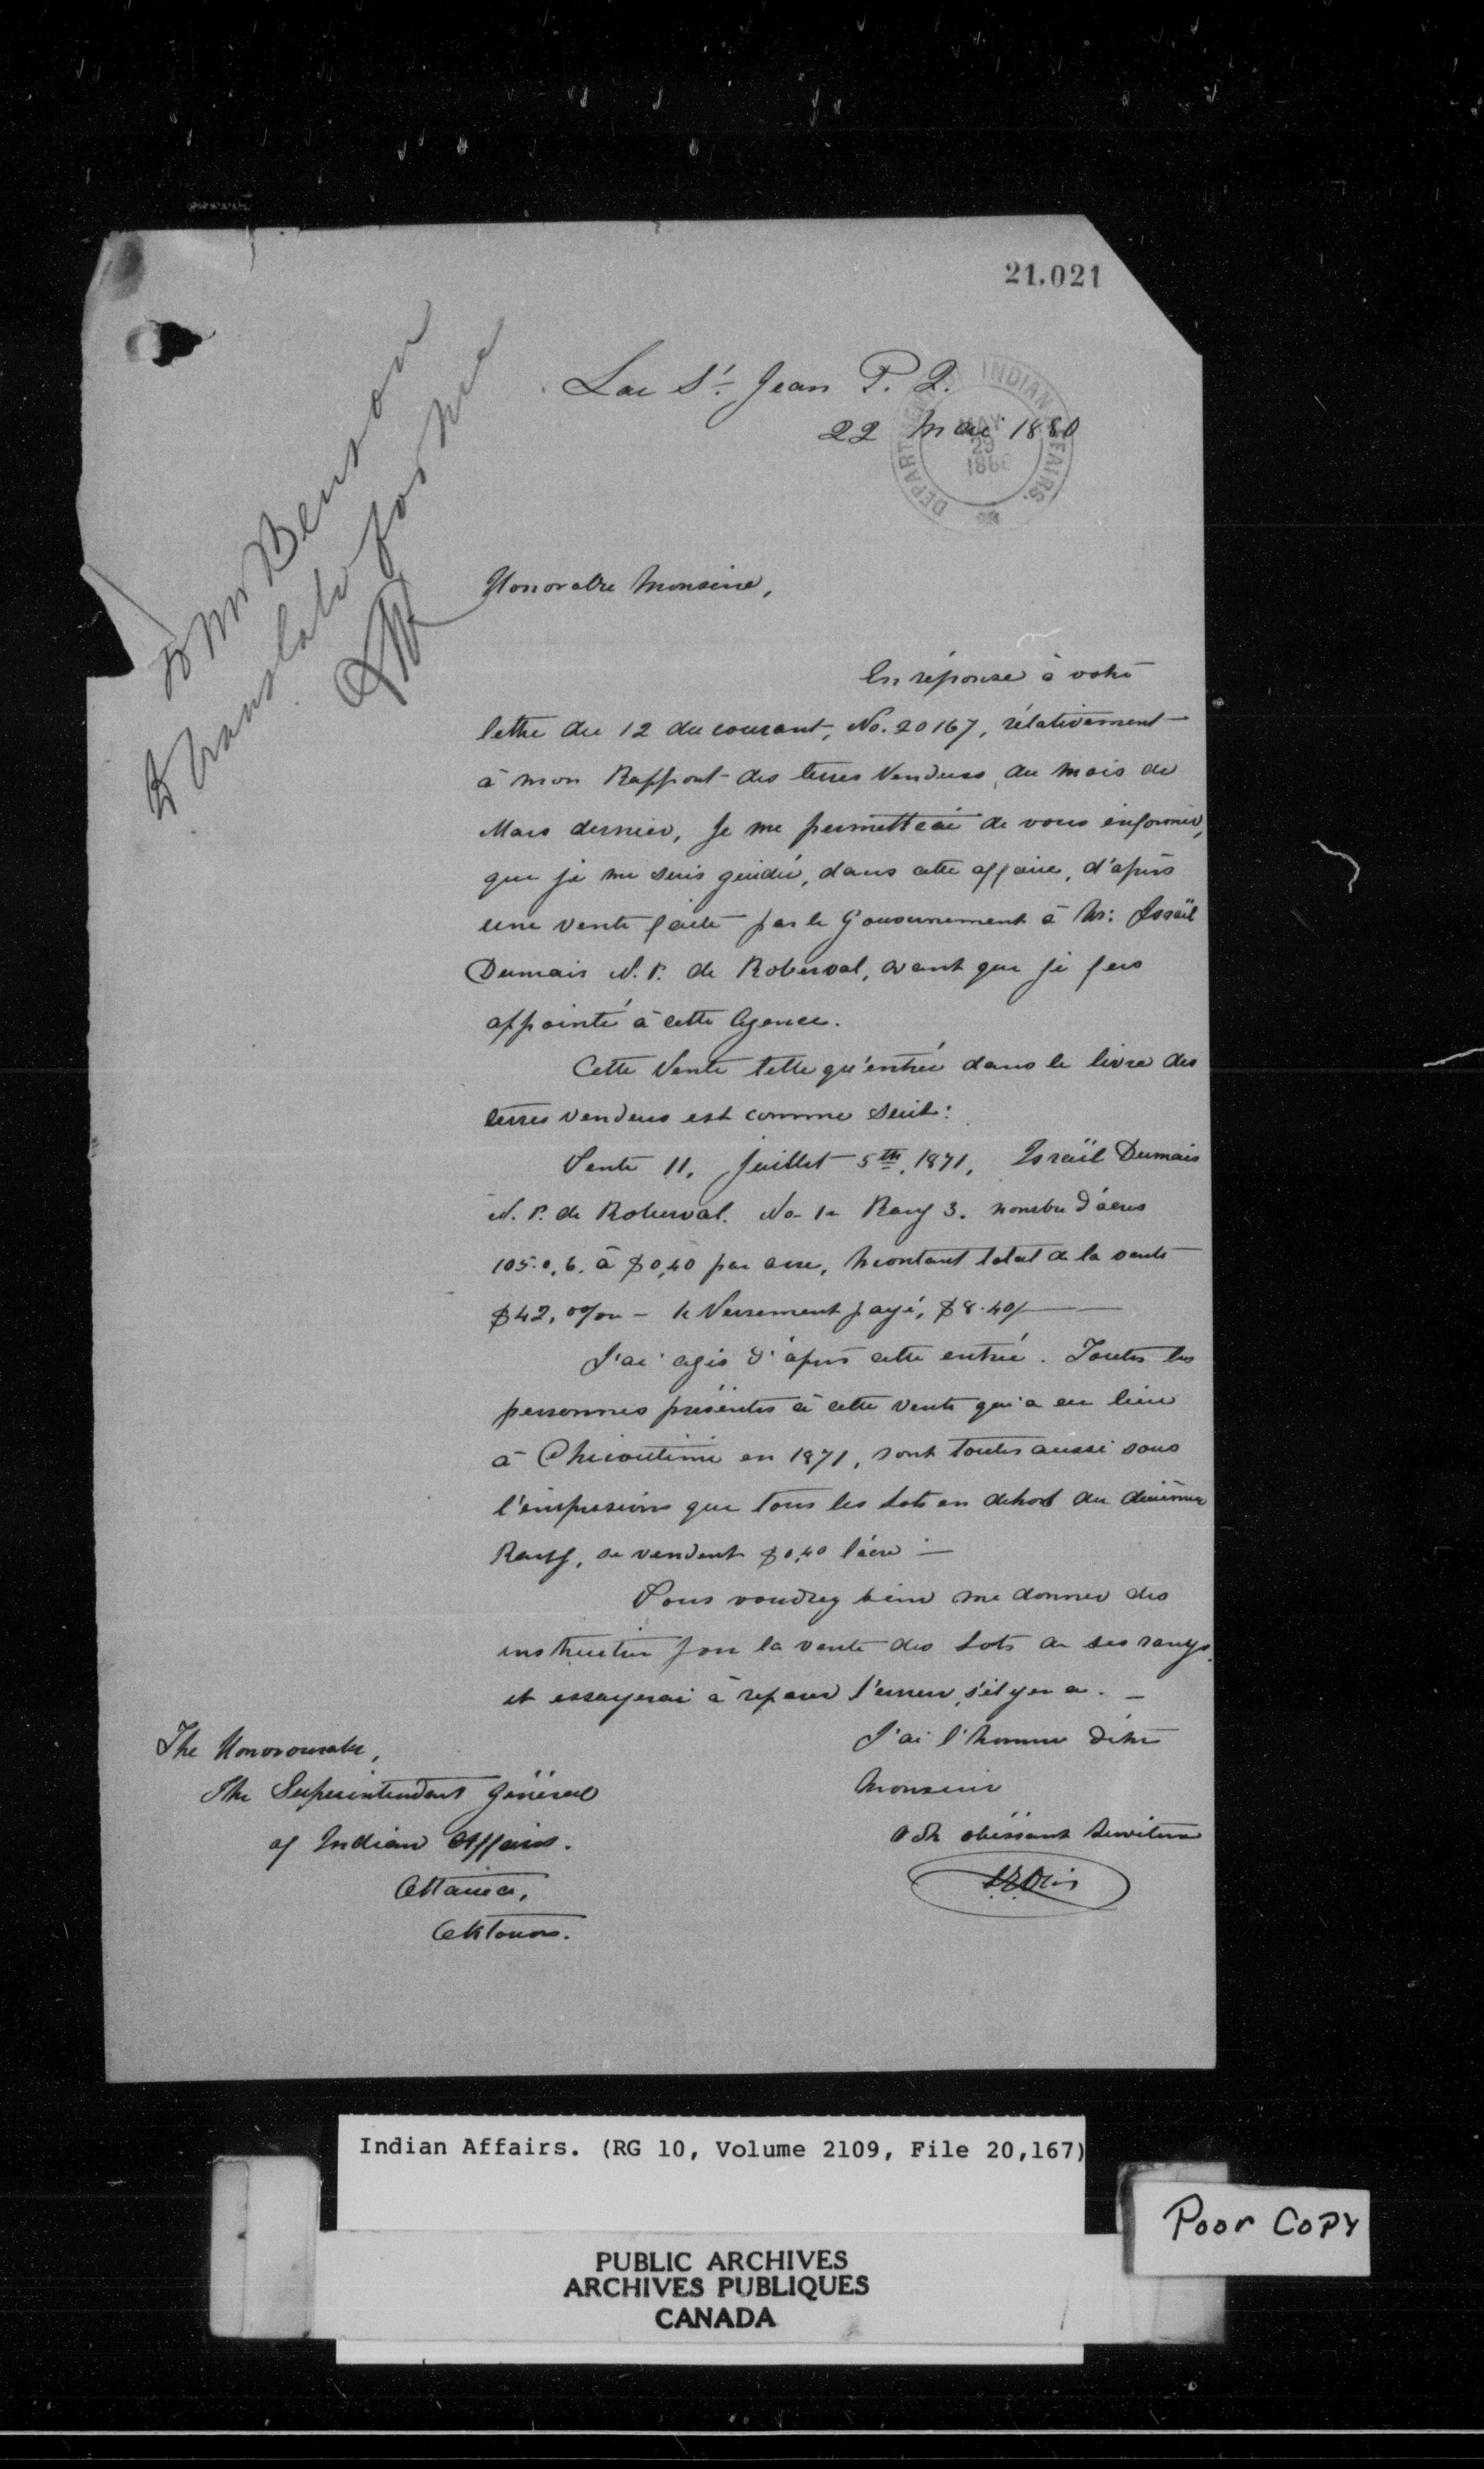 21,021
Lac St. Jean P. Q.
22 Mai 1880
DEPARTMENT OF INDIAN AFFAIRS.
MAY
29
1880
Mr Benson
to translate for me
Honorable Monsieur,
En réponse à votre
lettre du 12 du courant, No. 20167, rélativement
à mon Rapport des terres Vendues, du mois de
Mars dernier, Je me permetterai de vous informer,
que je me suis guidé, dans cette affaire, d'après
une vente faite par le Gouvernement à Mr: Israël
Dumais N. P. de Roberval, avant que je fus
appointé à cette Agence.
Cette Vente telle qu'entrée dans le livre des
terres vendues est comme suit:
Vente 11, Juillet 5th, 1871, Israël Dumais
N. P. de Roberval. No 1 Rang 3. nombre d'acres
105.0,6. à $0,40 par acre, Montant total de la vente
$42, Versement payé, $8.40
J'ai agis d'après cette entrée. Toutes les
personnes présentes à cette vente qui a eu lieu
à Chicoutimi en 1871, sont toutes aussi sous
l'impression que tous les Lots en dehors du deuxième
Rang, se vendent $0,40 l'acre —
Vous voudrez bien me donner des
instruction pour la vente des Lots de ses rangs,
et essayerai à reparer l'erreur, s'il y en a. —
J'ai l'honneur d'être
Monsieur
Votre obéissant Serviteur
The Honorourable,
The Superintendant Général
of Indian Affairs.
Ottawa,
Indian Affairs. (RG 10, Volume 2109, File 20,167)
Poor Copy
PUBLIC ARCHIVES
ARCHIVES PUBLIQUES
CANADA